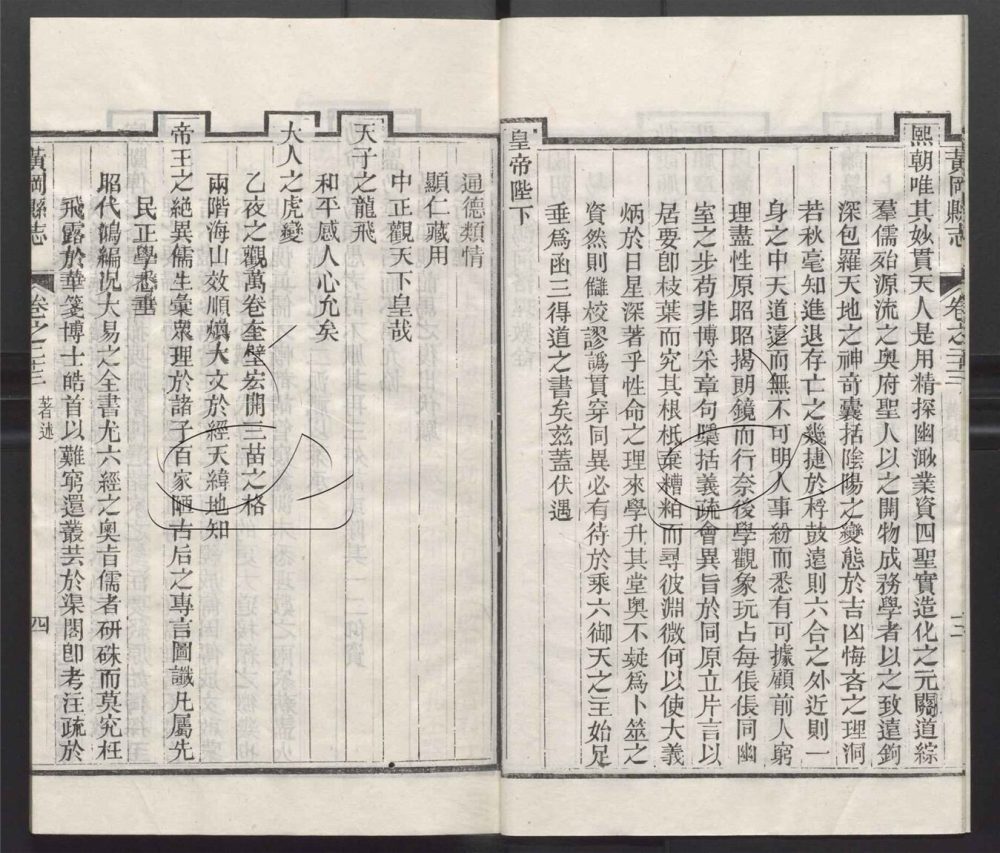 黃岡縣志
卷之二三
三
熙朝唯其妙貫天人是用精探幽渺業資四聖實造化之元關道綜
羣儒殆源流之奧府聖人以之開物成務學者以之致遠鉤
深包羅天地之神奇囊括陰陽之變態於吉凶悔吝之理洞
若秋毫知進退存亡之幾捷於桴鼓遠則六合之外近則一
身之中天道遠而無不可明人事紛而悉有可據顧前人窮
理盡性原昭昭揭朗鏡而行奈後學觀象玩占每倀倀同幽
室之步苟非博采章句櫽括義疏會異旨於同原立片言以
居要卽枝葉而究其根柢棄糟粕而尋彼淵微何以使大義
炳於日星深著乎性命之理來學升其堂奧不疑爲卜筮之
資然則讎校謬譌貫穿同異必有待於乘六御天之主始足
垂爲函三得道之書矣茲蓋伏遇
皇帝陛下
通德類情
顯仁藏用
中正觀天下皇哉
天子之龍飛
和平感人心允矣
大人之虎變
乙夜之觀萬卷奎壁宏開三苗之格
兩階海山效順煥大文於經天緯地知
帝王之絕異儒生彙衆理於諸子百家陋古后之專言圖讖凡屬先
民正學悉垂
昭代鴻編況大易之全書尤六經之奧旨儒者研硃而莫究枉
飛露於華箋博士皓首以難窮還叢芸於渠閣卽考注疏於
黃岡縣志
卷之二三
著述
四